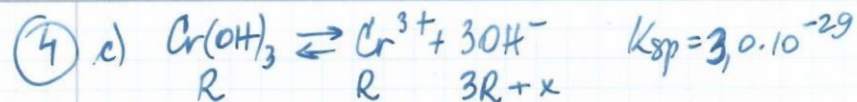 ④ c) Cr(OH)₃ ⇄ Cr³⁺ + 3OH⁻ Ksp = 3,0·10⁻²⁹
R R 3R + x